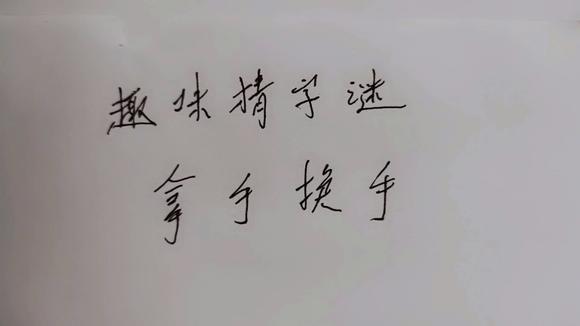 趣味猜字谜
拿手换手